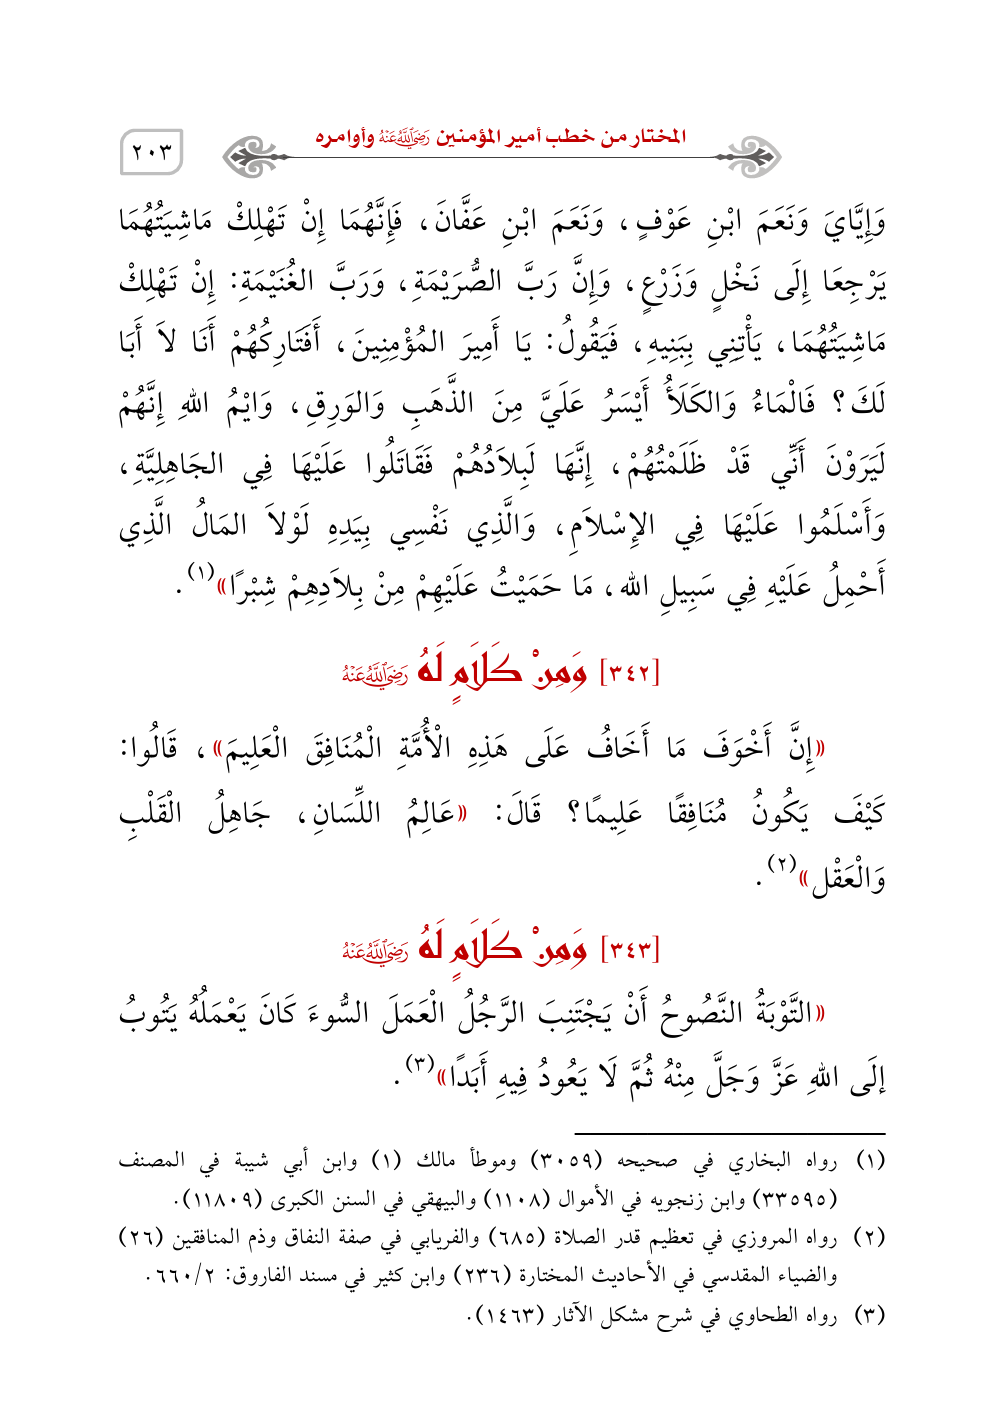 المختار من خطب أمير المؤمنين رَضِيَ اللَّهُ عَنْهُ وأوامره
٢٠٣
وَإِيَّايَ وَنَعَمَ ابْنِ عَوْفٍ، وَنَعَمَ ابْنِ عَفَّانَ، فَإِنَّهُمَا إِنْ تَهْلِكْ مَاشِيَتُهُمَا
يَرْجِعَا إِلَى نَخْلٍ وَزَرْعٍ، وَإِنَّ رَبَّ الصُّرَيْمَةِ، وَرَبَّ الغُنَيْمَةِ: إِنْ تَهْلِكْ
مَاشِيَتُهُمَا، يَأْتِنِي بِبَنِيهِ، فَيَقُولُ: يَا أَمِيرَ المُؤْمِنِينَ، أَفَتَارِكُهُمْ أَنَا لاَ أَبَا
لَكَ؟ فَالْمَاءُ وَالكَلَأُ أَيْسَرُ عَلَيَّ مِنَ الذَّهَبِ وَالوَرِقِ، وَايْمُ اللهِ إِنَّهُمْ
لَيَرَوْنَ أَنِّي قَدْ ظَلَمْتُهُمْ، إِنَّهَا لَبِلاَدُهُمْ فَقَاتَلُوا عَلَيْهَا فِي الجَاهِلِيَّةِ،
وَأَسْلَمُوا عَلَيْهَا فِي الإِسْلاَمِ، وَالَّذِي نَفْسِي بِيَدِهِ لَوْلاَ المَالُ الَّذِي
أَحْمِلُ عَلَيْهِ فِي سَبِيلِ الله، مَا حَمَيْتُ عَلَيْهِمْ مِنْ بِلاَدِهِمْ شِبْرًا»(١).
[٣٤٢] وَمِنْ كَلَامٍ لَهُ رَضِيَ اللَّهُ عَنْهُ
«إِنَّ أَخْوَفَ مَا أَخَافُ عَلَى هَذِهِ الْأُمَّةِ الْمُنَافِقَ الْعَلِيمَ»، قَالُوا:
كَيْفَ يَكُونُ مُنَافِقًا عَلِيمًا؟ قَالَ: «عَالِمُ اللِّسَانِ، جَاهِلُ الْقَلْبِ
وَالْعَقْلِ»(٢).
[٣٤٣] وَمِنْ كَلَامٍ لَهُ رَضِيَ اللَّهُ عَنْهُ
«التَّوْبَةُ النَّصُوحُ أَنْ يَجْتَنِبَ الرَّجُلُ الْعَمَلَ السُّوءَ كَانَ يَعْمَلُهُ يَتُوبُ
إِلَى اللهِ عَزَّ وَجَلَّ مِنْهُ ثُمَّ لَا يَعُودُ فِيهِ أَبَدًا»(٣).
(١) رواه البخاري في صحيحه (٣٠٥٩) وموطأ مالك (١) وابن أبي شيبة في المصنف
(٣٣٥٩٥) وابن زنجويه في الأموال (١١٠٨) والبيهقي في السنن الكبرى (١١٨٠٩).
(٢) رواه المروزي في تعظيم قدر الصلاة (٦٨٥) والفريابي في صفة النفاق وذم المنافقين (٢٦)
والضياء المقدسي في الأحاديث المختارة (٢٣٦) وابن كثير في مسند الفاروق: ٢/ ٦٦٠.
(٣) رواه الطحاوي في شرح مشكل الآثار (١٤٦٣).